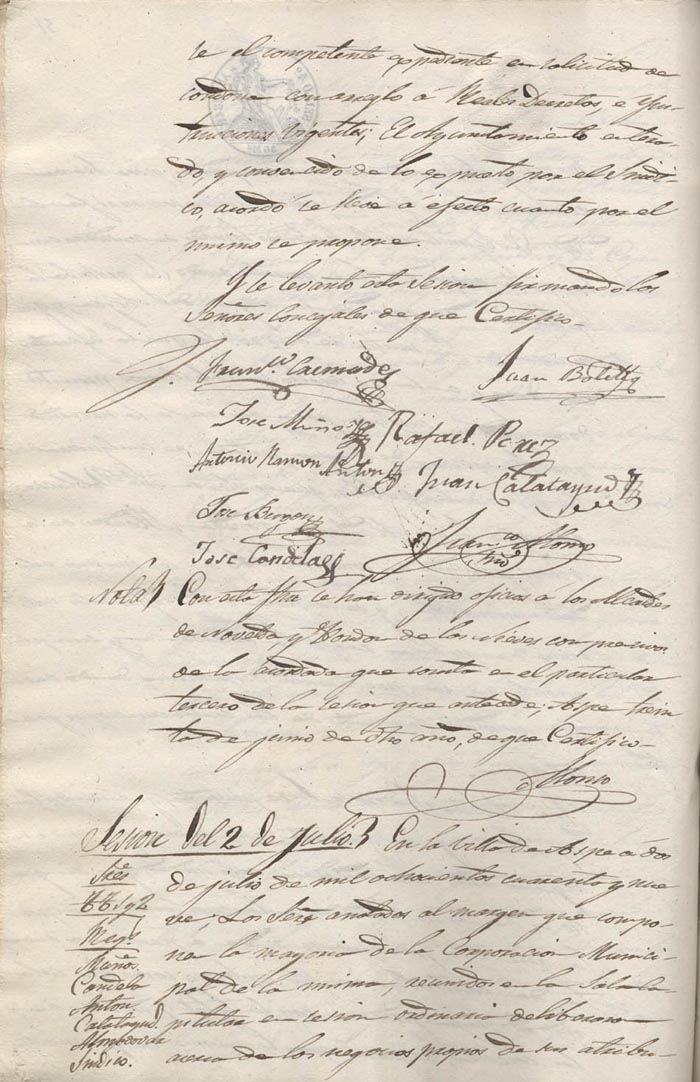 se el competente expediente en solicitud de
condona con arreglo á Reales Decretos, e Yns-
trucciones vigentes; El Ayuntamiento entera-
do, y convencido de lo expuesto por el Sindi-
co, acordó se lleve a efecto cuanto por el
mismo se propone.
Y se levantó esta Sesion firmando los
Señores Concejales de que Certifico-
Fran.co Caemades
Juan Botella
Jose Muños
Rafael Perez
Antonio Ramon
Anton
Juan Calatayud
Jose
Jose Candela
Juan Alonso
Nota
Con esta fha se han dirigido oficios a los Alcaldes
de Novelda, y Hondon de las Nieves compresivos
de lo acordado que consta en el particular
tercero de la sesion que antecede; Aspe trein
ta de junio de dho año, de que Certifico-
Alonso
Sesion del 2 de julio
En la villa de Aspe a dos
de julio de mil ochocientos cuarenta y nue
ve; Los Señs anotados al margen que compo-
nen la mayoria de la Corporacion Munici-
pal de la misma, reunidos en la Sala Ca-
pitular en sesion ordinaria deliberaron
acerca de los negocios propios de sus atribu-
Sres
Regs
Muños.
Candela
Anton
Calatayud.
Almodovar
Sindico.